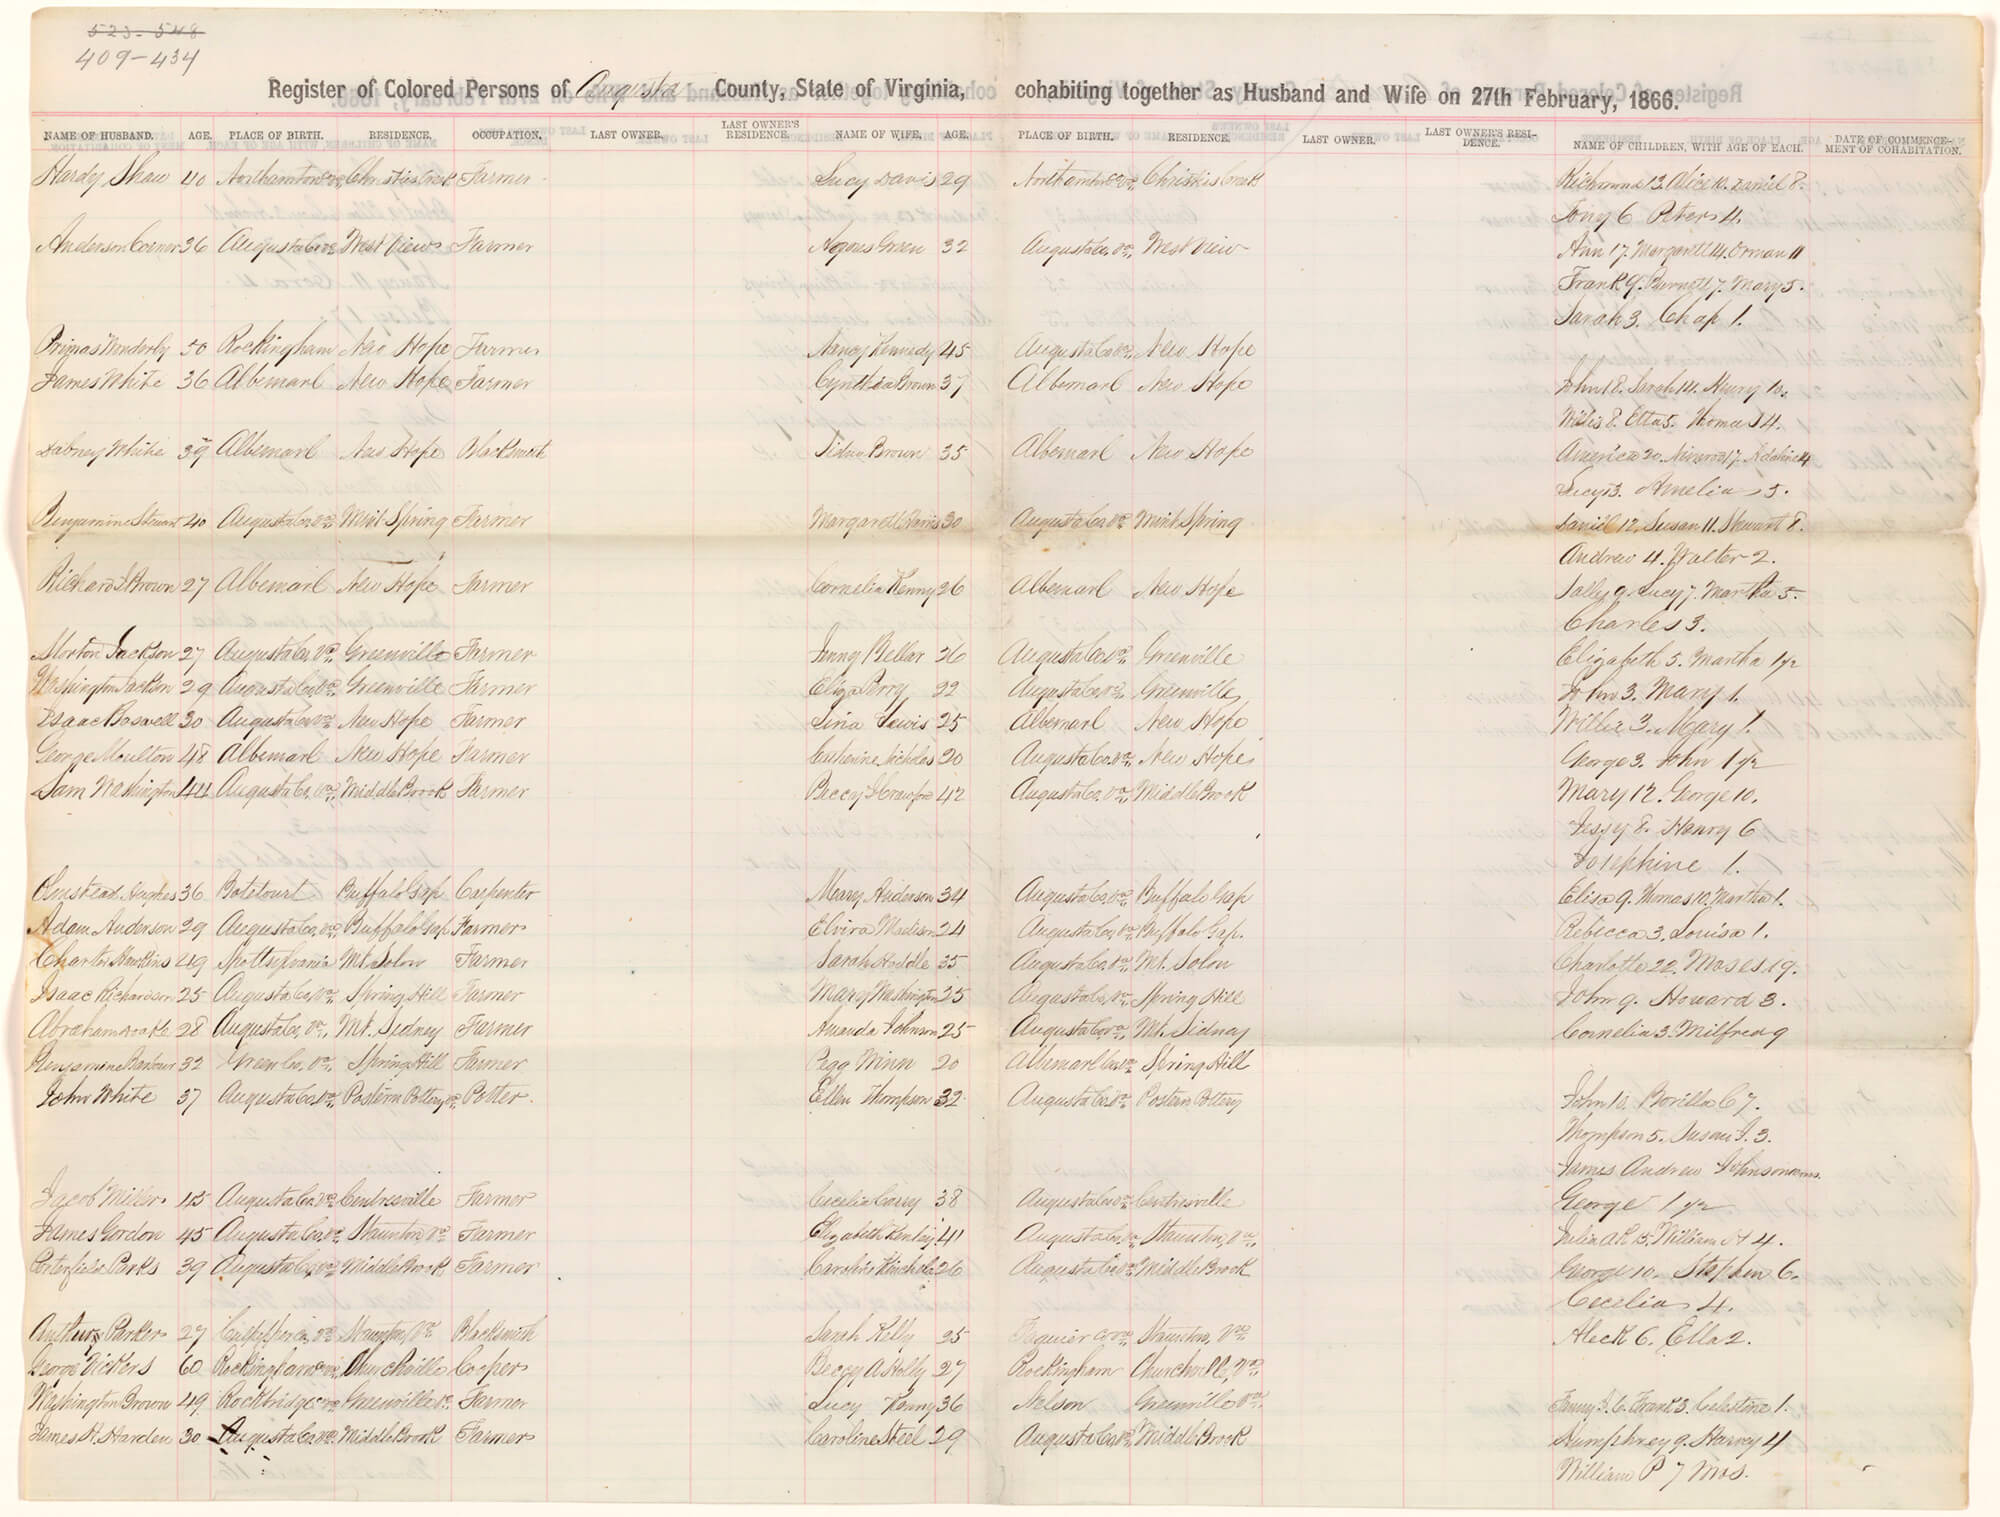 523-548
409-434
Register of Colored Persons of Augusta County, State of Virginia, cohabiting together as Husband and Wife on 27th February, 1866.
NAME OF HUSBAND. AGE. PLACE OF BIRTH. RESIDENCE. OCCUPATION. LAST OWNER. LAST OWNER'S RESIDENCE. NAME OF WIFE. AGE. PLACE OF BIRTH. RESIDENCE. LAST OWNER. LAST OWNER'S RESIDENCE. NAME OF CHILDREN, WITH AGE OF EACH. DATE OF COMMENCEMENT OF COHABITATION.
Hardy Shaw 40 Farmer Lucy Davis 29 Richmond 13. Alice 10. Daniel 8.
Tony 6 Peter 4.
Anderson 36 Augusta Co. Va. West View Farmer Green 32 Augusta Co. Va. West View Ann 17. Margarett 14. Orman 11
Frank 9. Burnett 7. Mary 5.
Sarah 3. Chap 1.
50 Rockingham New Hope Farmer Nancy Kennedy 45 Augusta Co. Va. New Hope
James White 36 Albemarl New Hope Farmer Cynthia Brown 37 Albemarl New Hope John 18. Sarah 14. Henry 10.
Willis 8. Etta 5. Thomas 4.
Dabney White 39 Albemarl New Hope Blacksmith Brown 35 Albemarl New Hope America 20. Nimrod 17. Adaline 14
Lucy 13. Amelia 5.
Benjamine Stewart 40 Augusta Co. Va. Mint Spring Farmer Margarett 30 Augusta Co. Va. Mint Spring Daniel 12. Susan 11. Stewart 8.
Andrew 4. Walter 2.
Richard J Brown 27 Albemarl New Hope Farmer Cornelia Kenny 26 Albemarl New Hope Sally 9. Lucy 7. Martha 5.
Charles 3.
Morton Jackson 27 Augusta Co. Va. Greenville Farmer Jenny 26 Augusta Co. Va. Greenville Elizabeth 5. Martha 1 yr
Washington Jackson 29 Augusta Co. Va. Greenville Farmer Eliza Perry 22 Augusta Co. Va. Greenville John 3. Mary 1.
Isaac Boswell 30 Augusta Co. Va. New Hope Farmer Lewis 25 Albemarl New Hope Willie 3. Mary 1.
George Moulton 48 Albemarl New Hope Farmer Catherine Nicholas 20 Augusta Co. Va. New Hope George 3. John 1 yr
Sam Washington 44 Augusta Co. Va. Middle Brook Farmer Beccy J Crawford 42 Augusta Co. Va. Middle Brook Mary 12. George 10.
Jessy 8. Henry 6
Josephine 1.
Olmstead Hughes 36 Botetourt Buffalo Gap Carpenter Meary Anderson 34 Augusta Co. Va. Buffalo Gap Elisa 9. Thomas 10. Martha 1.
Adam Anderson 29 Augusta Co. Va. Buffalo Gap Farmer Elvira Madison 24 Augusta Co. Va. Buffalo Gap. Rebecca 3. Louisa 1.
Hawkins 49 Spottsylvania Mt. Solon Farmer Sarah 35 Augusta Co. Va. Mt. Solon Charlotte 22. Moses 19.
Isaac Richardson 25 Augusta Co. Va. Spring Hill Farmer Mary Washington 25 Augusta Co. Va. Spring Hill John 9. Howard 3.
Abraham 28 Augusta Co. Va. Mt. Sidney Farmer Amanda Johnson 25 Augusta Co. Va. Mt. Sidney Cornelia 3. Milfred 9
Benjamine Barbour 32 Green Co. Va. Spring Hill Farmer Pegg Winn 20 Albemarl Co. Va. Spring Hill
John White 37 Augusta Co. Va. Pottery Potter. Ellen Thompson 32 Augusta Co. Va. Pottery John 10. 7.
Thompson 5. Susan J. 3.
James Andrew Johnson
Jacob Miller 45 Augusta Co. Va. Centreville Farmer Cecelia 38 Augusta Co. Va. Centreville George 1 yr
James Gordon 45 Augusta Co. Va. Staunton Va. Farmer Elizabeth 41 Augusta Co. Va. Staunton, Va. Julia 15. William 4.
Porterfield Parks 39 Augusta Co. Va. Middle Brook Farmer Caroline 26 Augusta Co. Va. Middle Brook George 10. Stephen 6.
Cecelia 4.
Parker 27 Staunton, Va. Blacksmith Sarah Kelly 25 Staunton, Va. Aleck 6. Ella 2.
George Vickers 60 Rockingham Churchville Cooper Beccy A Holly 27 Rockingham Churchville, Va. 
Washington Brown 49 Rockbridge Greenville Farmer Lucy Kenny 36 Nelson Greenville Va. Fanny J. 6. Frank 3. Celestine 1.
James H. Harden 30 Augusta Co. Va. Middle Brook Farmer Caroline Steel 29 Augusta Co. Va. Middle Brook Humphrey 9. Harvey 4
William P 7 mos.